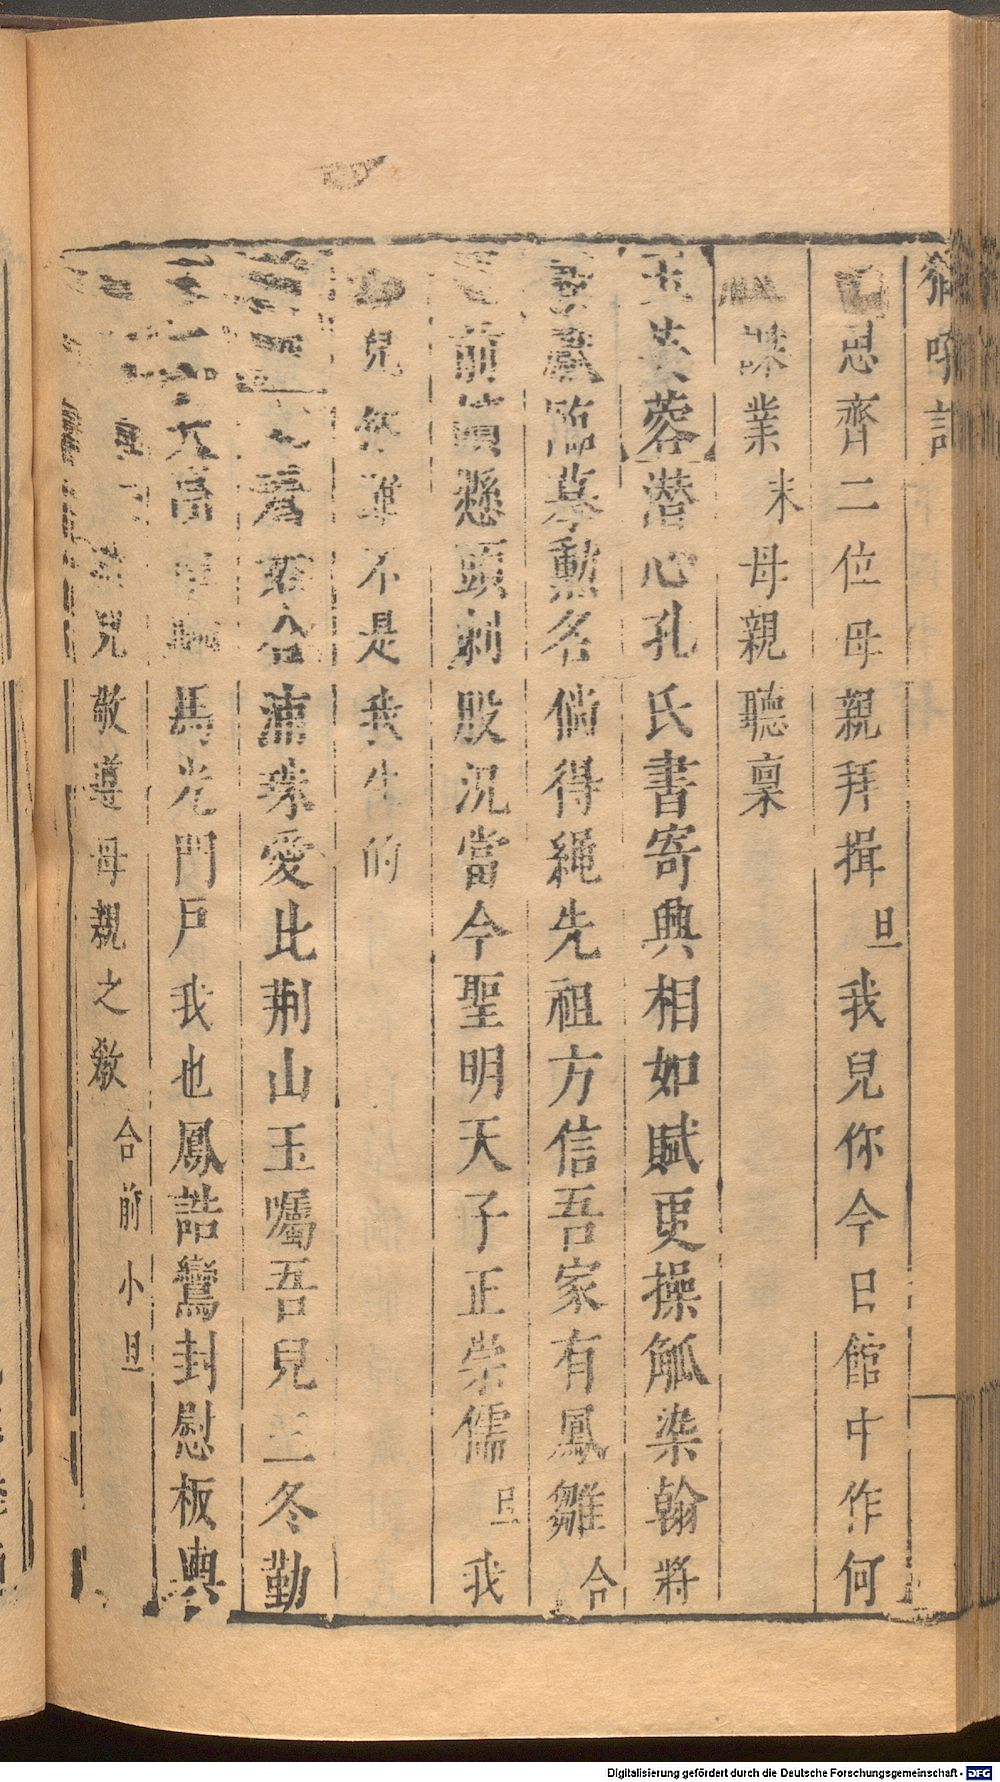 思齊二位母親拜揖旦我兒你今日館中作何
課業末母親聽稟
玉芙蓉潛心孔氏書寄興相如賦更操觚染翰將
臨摹勲名倘得繩先祖方信吾家有鳳雛合
前懸頭刺股況當今聖明天子正崇儒旦我
兒不是我生的
合浦珠愛比荆山玉囑吾兒三冬勤
馬光門戶我也鳳誥鸞封慰板輿
兒敬遵母親之教合前小旦
Digitalisierung gefördert durch die Deutsche Forschungsgemeinschaft - DFG